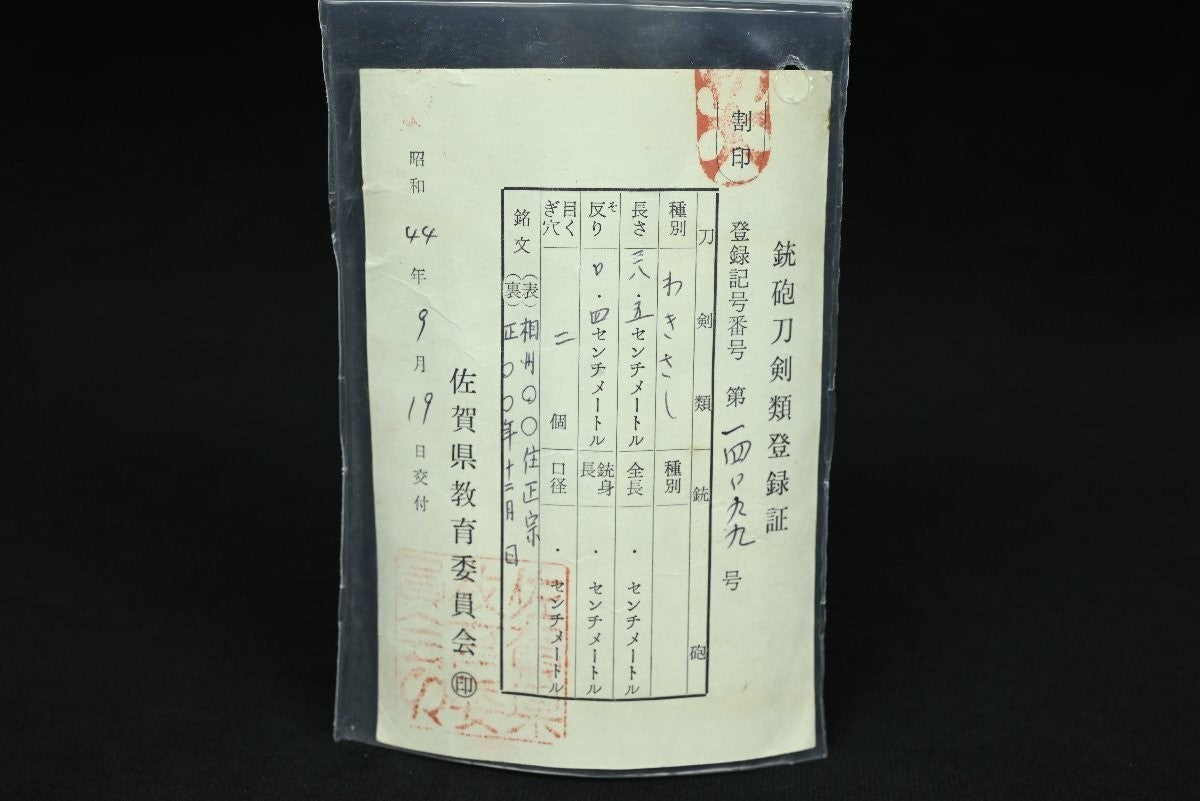 銃砲刀剣類登録証
割印
登録記号番号 第一四〇九九号
刀剣類 銃砲
種別 わきさし 種別
長さ 三八・五センチメートル 全長 ・ センチメートル
反り 〇・四センチメートル 銃身長 ・ センチメートル
そ
目くぎ穴 二個 口径 ・ センチメートル
銘文 (表) 相州〇〇住正宗
(裏) 正〇〇年十二月日
昭和44年9月19日交付
佐賀県教育委員会 印